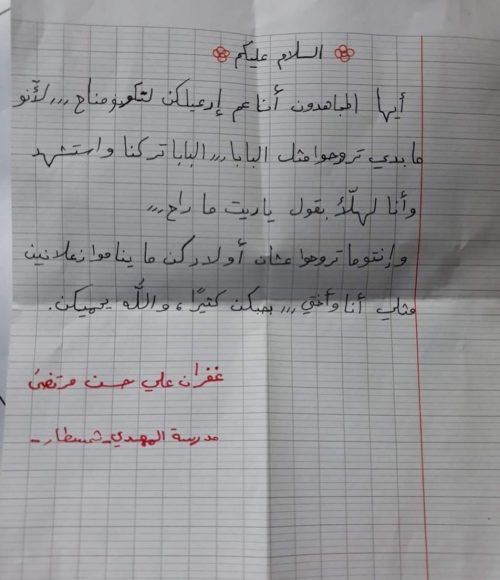 السلام عليكم
أيها المجاهدون أنا عم إدعيلكن لتكونو مناح ,,, لأنو
ما بدي تروحوا مثل البابا ,,, البابا تركنا واستشهد
وأنا لهلّأ بقول ياريت ما راح ,,,
وإنتو ما تروحوا عشان أولادكن ما يناموا زعلانين
مثلي أنا وأختي ,,, بحبكن كثيرًا، والله يحميكن.
غفران علي حسن مرتضى
مدرسة المهدي - شمسطار -